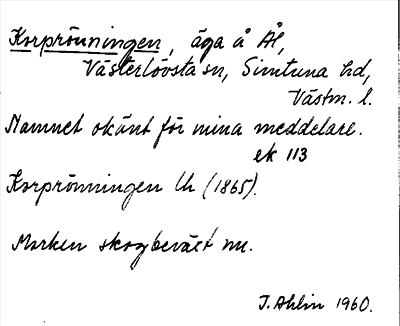 Korprönningen, äga å Ål,
Västerlövsta sn, Simtuna hd,
Västm. l.
Namnet okänt för mina meddelare.
ek 113
Korprönningen Uh (1865).
Marken skogbeväxt nu.
I. Ahlin 1960.